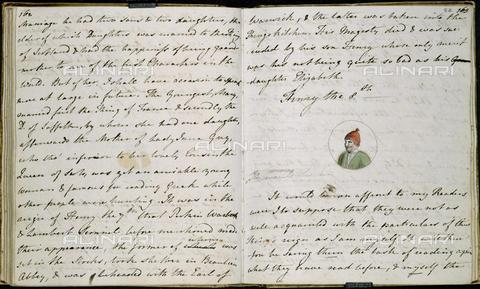 162
Marriage he had two sons & two daughters, the
elder of which Daughters was married to the King
of Scotland & had the happiness of being grand-
mother to one of the first Characters in the
World. But of her, I shall have occasion to speak
more at large in future. The Youngest, Mary,
married first the King of France & secondly the
D. of Suffolk, by whom she had one daughter,
afterwards the Mother of Lady Jane Grey,
who tho' inferior to her lovely Cousin the
Queen of Scots, was yet an amiable young
woman & famous for reading Greek while
other people were hunting. It was in the
reign of Henry the 7th that Perkin Warbeck
& Lambert Simnel before mentioned made
their appearance, the former of whom was
set in the Stocks, took shelter in Beaulieu
Abbey, & was beheaded with the Earl of
Warwick, & the latter was taken into the
Kings kitchen. His Majesty died & was suc-
ceeded by his son Henry whose only merit
was his not being quite so bad as his
daughter Elizabeth.
Henry the 8th
It would be an affront to my Readers
were I to suppose that they were not as
well acquainted with the particulars of this
King's reign as I am myself. It will therefore
be saving them the task of reading again
what they have read before, & myself the
ALINARI
ALINARI
ALINARI
ALINARI